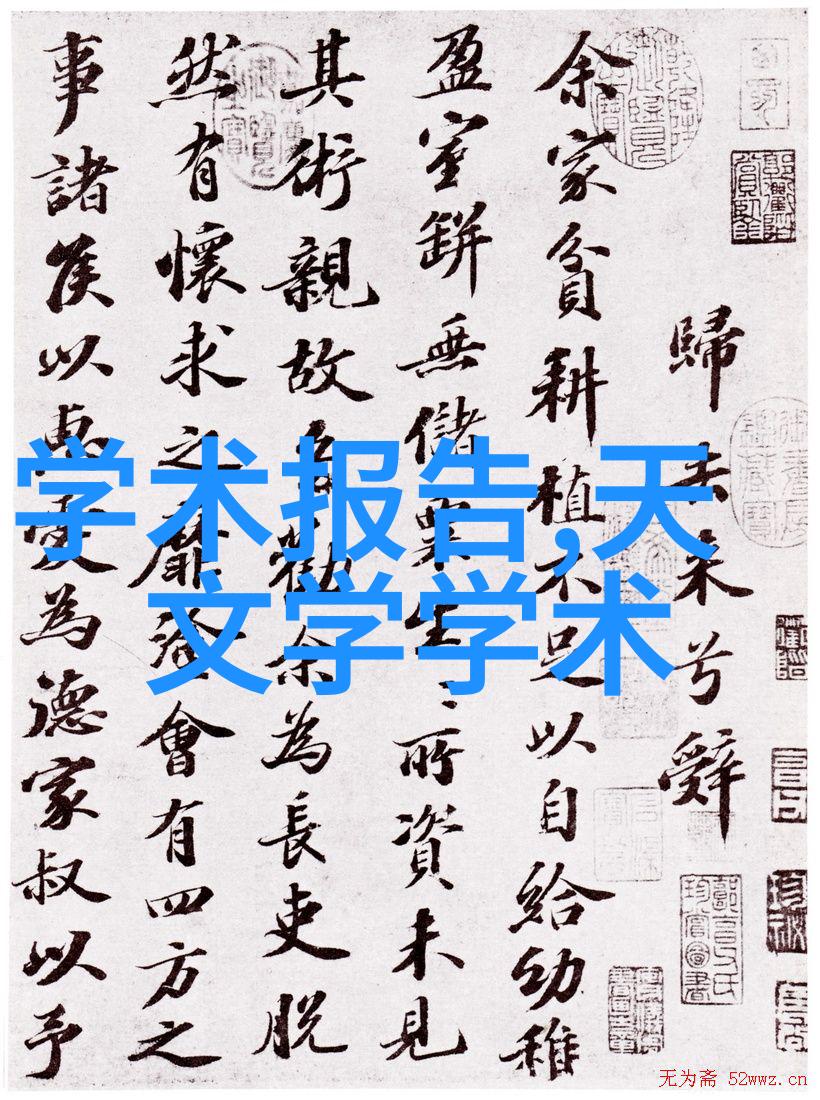 歸去来兮辭
余家貧耕植不足以自給幼稚
盈室缾無儲粟生〻所資未見
其術親故多勸余為長吏脱
然有懷求之靡途會有四方之
事諸侯以惠愛為德家叔以予
学术报告,天
文学学术
无为斋 52wwz.cn